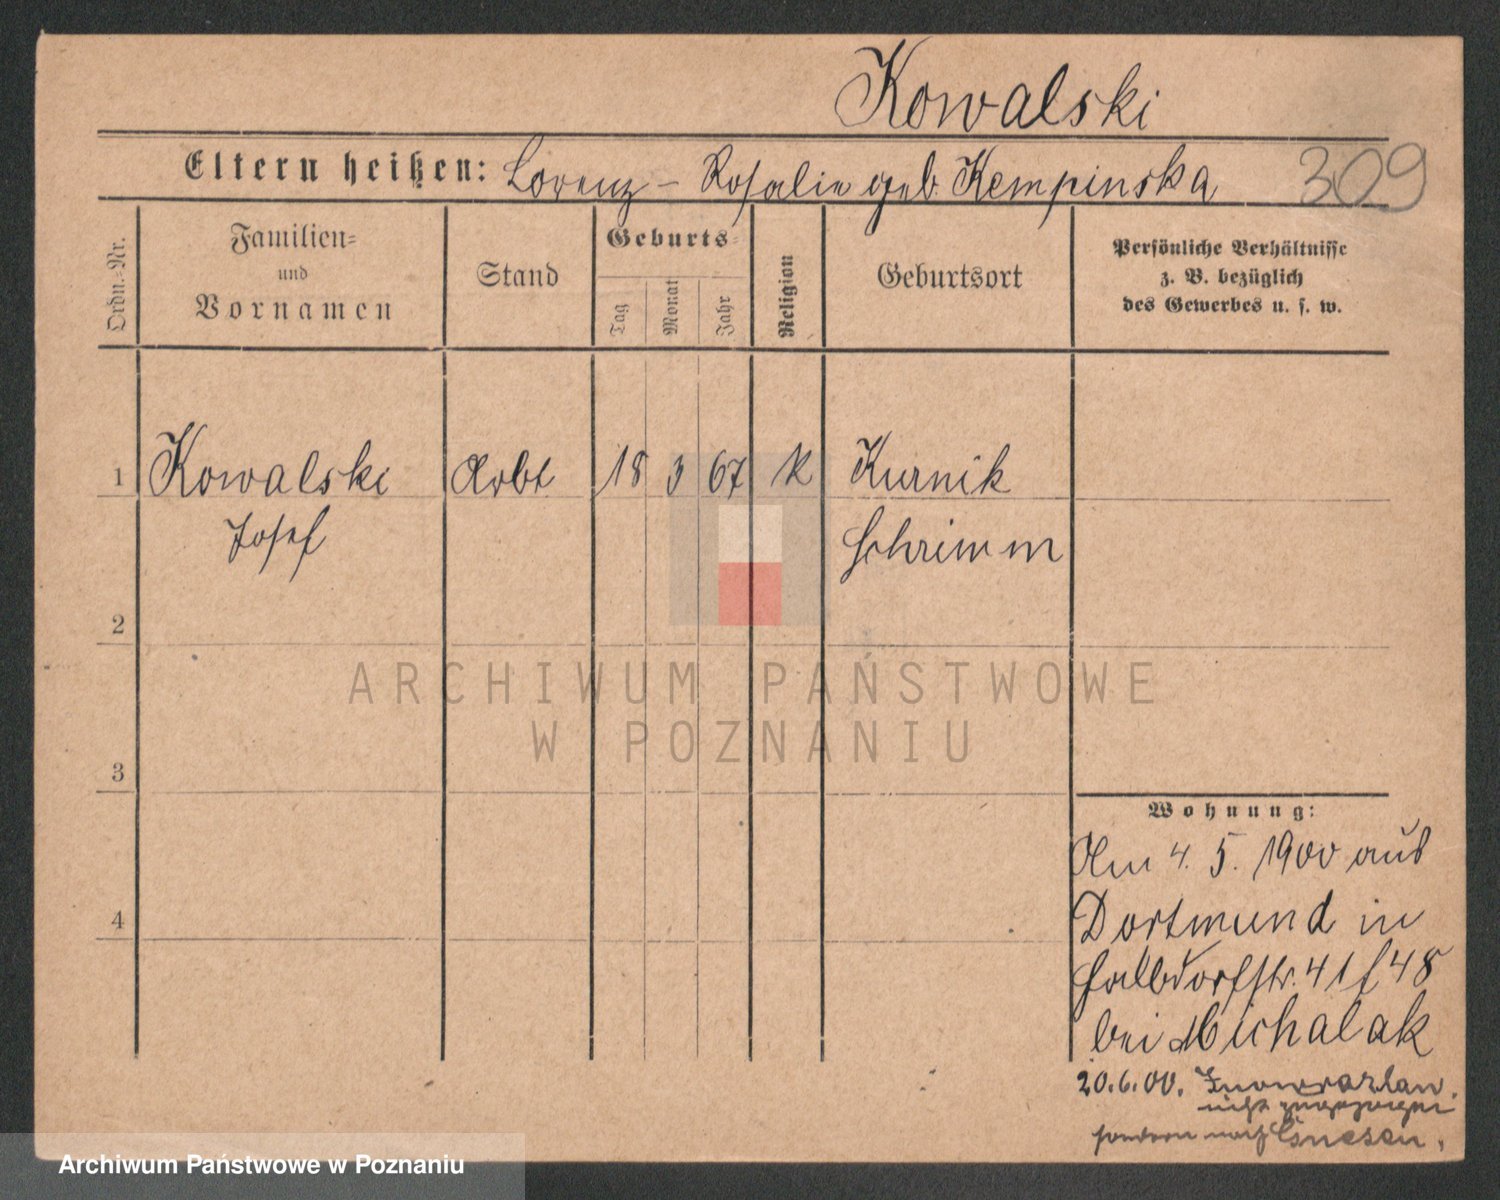 Kowalski
Eltern heißen: Lorenz – Rosalie geb Kempinska 309
Ordn.-Nr.
Familien-
und
Vornamen
Stand
Geburts-
Tag
Monat
Jahr
Religion
Geburtsort
Persönliche Verhältnisse
z. B. bezüglich
des Gewerbes u. s. w.
1 Kowalski Arbt 18 3 67 K Kurnik
Josef Schrimm
2
3
4
ARCHIWUM PAŃSTWOWE
W POZNANIU
Wohnung:
Am 4. 5. 1900 aus
Dortmund in
Halbdorfstr. 41/48
bei Michalak
20.6.00. Inowrazlaw
nicht zugezogen
sondern nach Gnesen.
Archiwum Państwowe w Poznaniu